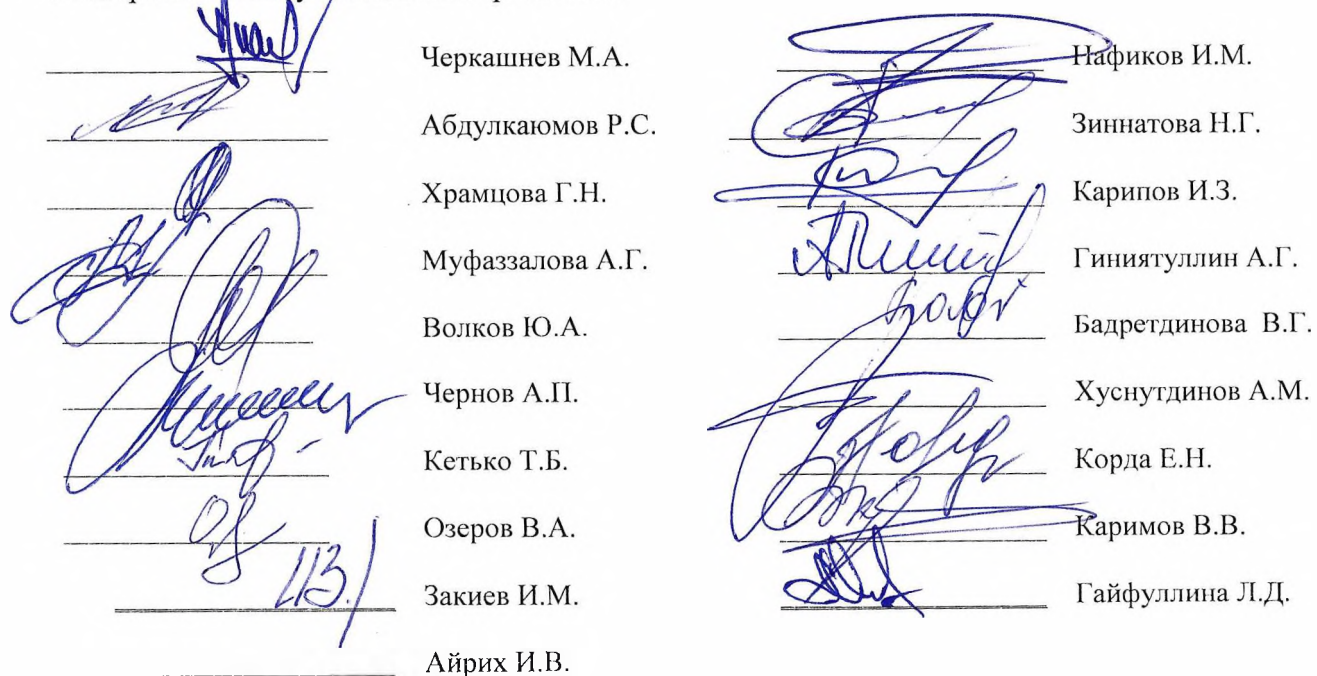 Черкашнев М.А.
Абдулкаюмов Р.С.
Храмцова Г.Н.
Муфаззалова А.Г.
Волков Ю.А.
Чернов А.П.
Кетько Т.Б.
Озеров В.А.
Закиев И.М.
Айрих И.В.
Нафиков И.М.
Зиннатова Н.Г.
Карипов И.З.
Гиниятуллин А.Г.
Бадретдинова В.Г.
Хуснутдинов А.М.
Корда Е.Н.
Каримов В.В.
Гайфуллина Л.Д.